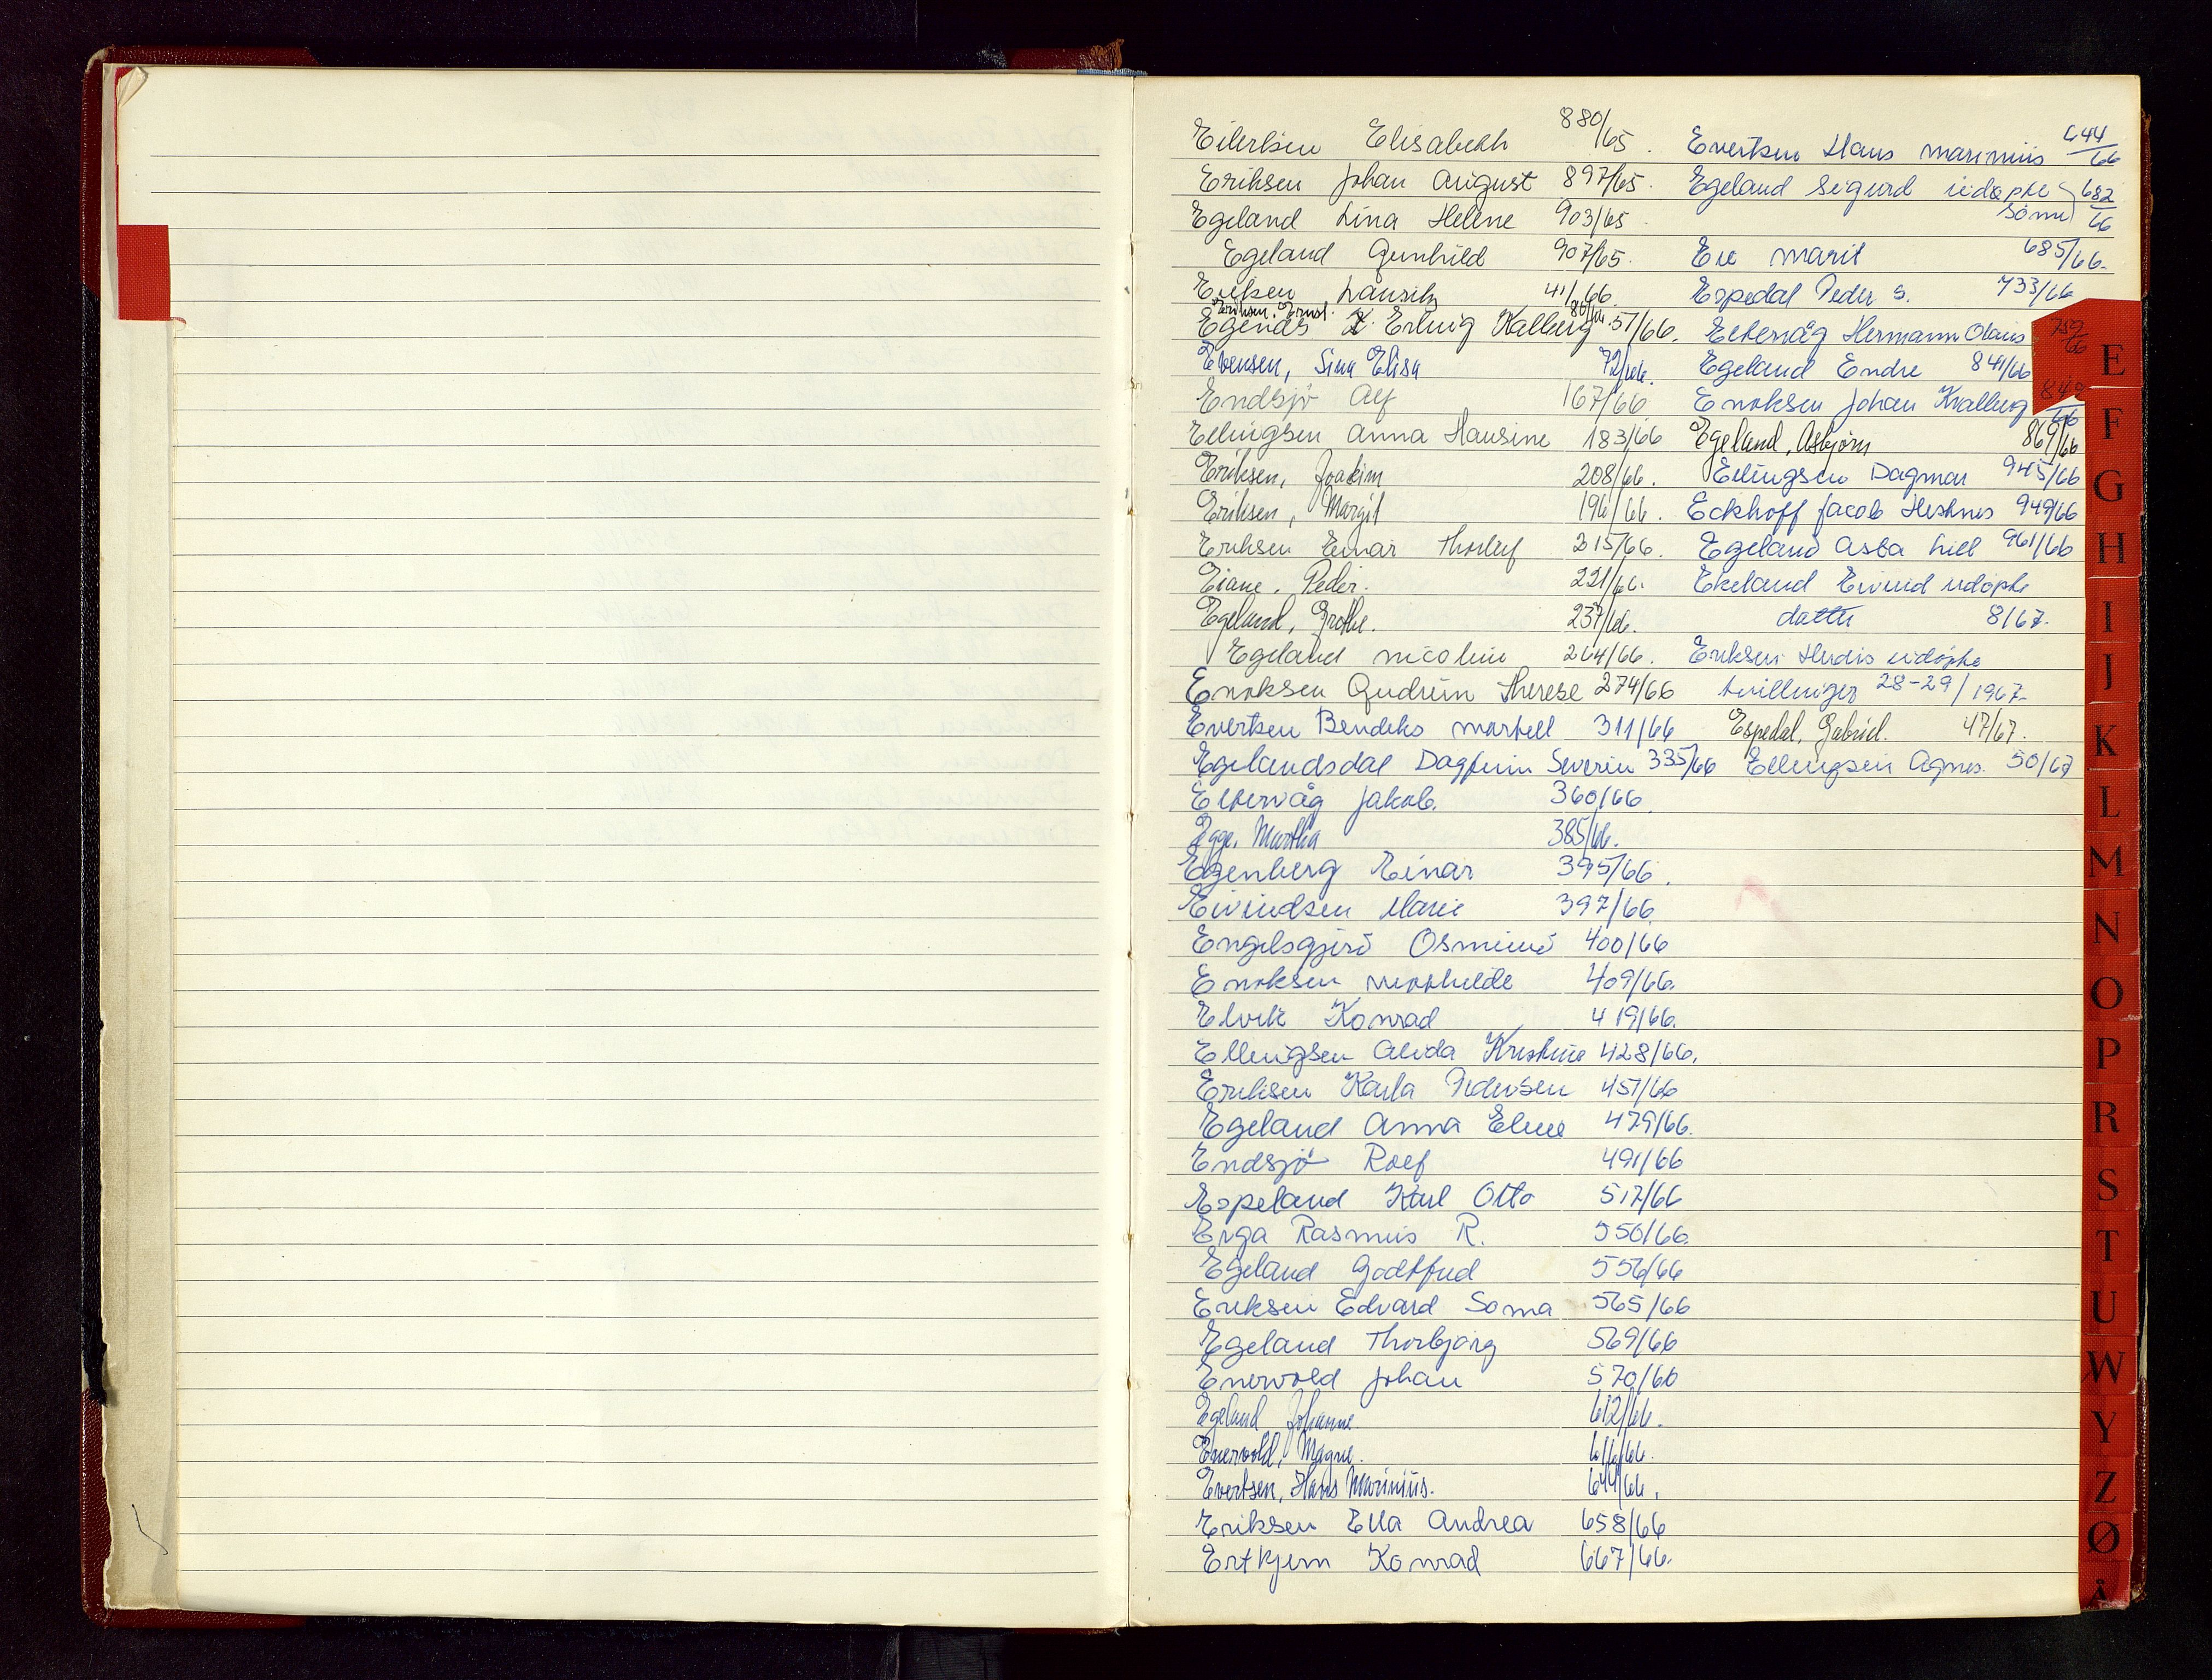 Eilertsen Elisabeth 880/65.
Eriksen Johan August 897/65.
Egeland Lina Helene 903/65
Egeland Gunhild 907/65.
41/66.
Eriksen, Ernst. 80/66.
Egenæs Erling Kalberg 51/66.
Evensen, Sina Elisa 72/66.
Endsjø Alf 167/66
Ellingsen Anna Hansine 183/66
Eriksen, Joakim 208/66.
Eriksen, Margit 196/66.
Eriksen Einar Thorleif 215/66.
Eiane, Peder. 221/66.
Egeland, Grethe. 237/66.
Egeland Nicoline 264/66.
Enoksen Gudrun Therese 274/66
Evertsen Bendiks Martell 311/66
Egelandsdal Dagfinn Severin 335/66
Eltervåg Jakob. 360/66.
Egge, Martha 385/66.
Egenberg Einar 395/66.
Eivindsen Marie 397/66.
Engelsgjerd Osmund 400/66
Enoksen 409/66.
Elvik Konrad 419/66.
Ellingsen Alida Kristine 428/66.
Eriksen Karla Pedersen 451/66
Egeland Anna Eline 479/66.
Endsjø Rolf 491/66
Espeland Karl Otto 517/66
Erga Rasmus R. 550/66.
Egeland Godtfred 556/66
Eriksen Edvard Soma 565/66
Egeland Thorbjørg 569/66
Enervold Johan 570/66
Egeland Johanne. 612/66.
Enervold, Magne. 616/66.
Evertsen, Hans Marinius. 644/66.
Eriksen Ella Andrea 658/66
Ertkjern Konrad 667/66.
Evertsen Hans Marinius 644/66
Egeland Sigurd udøpte 682/66
sønn
Eie Marit 685/66.
Espedal Peder S. 733/66
Eltervåg Hermann Olaus 759/66
Egeland Endre 841/66
Enoksen Johan Kvalberg 849/66
Egeland, Asbjørn 869/66
Ellingsen Dagmar 945/66
Eckhoff Jacob Hestnes 949/66
Egeland Asta Lill 961/66
Ekeland Eivind udøpte
datter 8/67.
Eriksen Herdis udøpte
tvillinger 28-29/1967.
Espedal, Gabriel. 47/67.
Ellingsen Agnes. 50/67
E
F
G
H
I
J
K
L
M
N
O
P
R
S
T
U
W
Y
Z
Ø
Å